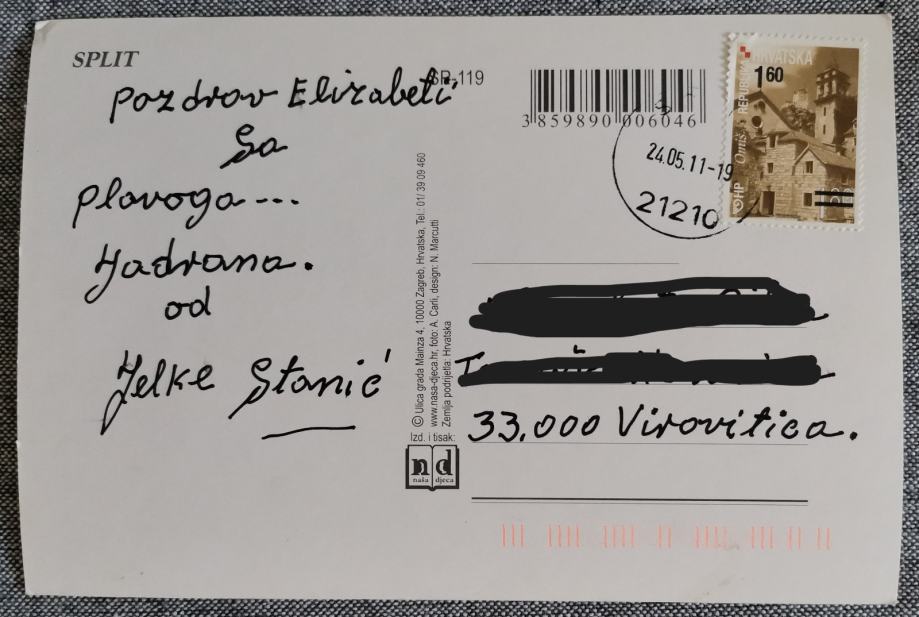 SPLIT
SP-119
Pozdrav Elizabeti
Sa
Plavoga...
Jadrana.
od
Jelke Stanić
© Ulica grada Mainza 4, 10000 Zagreb, Hrvatska, Tel.: 01/ 39 09 460
www.nasa-djeca.hr, foto: A. Carli, design: N. Marcutti
Zemlja podrijetla: Hrvatska
Izd. i tisak:
nd
naša djeca
3 859890 006046
24.05.11-19
21210
REPUBLIKA HRVATSKA
1 60
Omiš
HP
33.000 Virovitica.